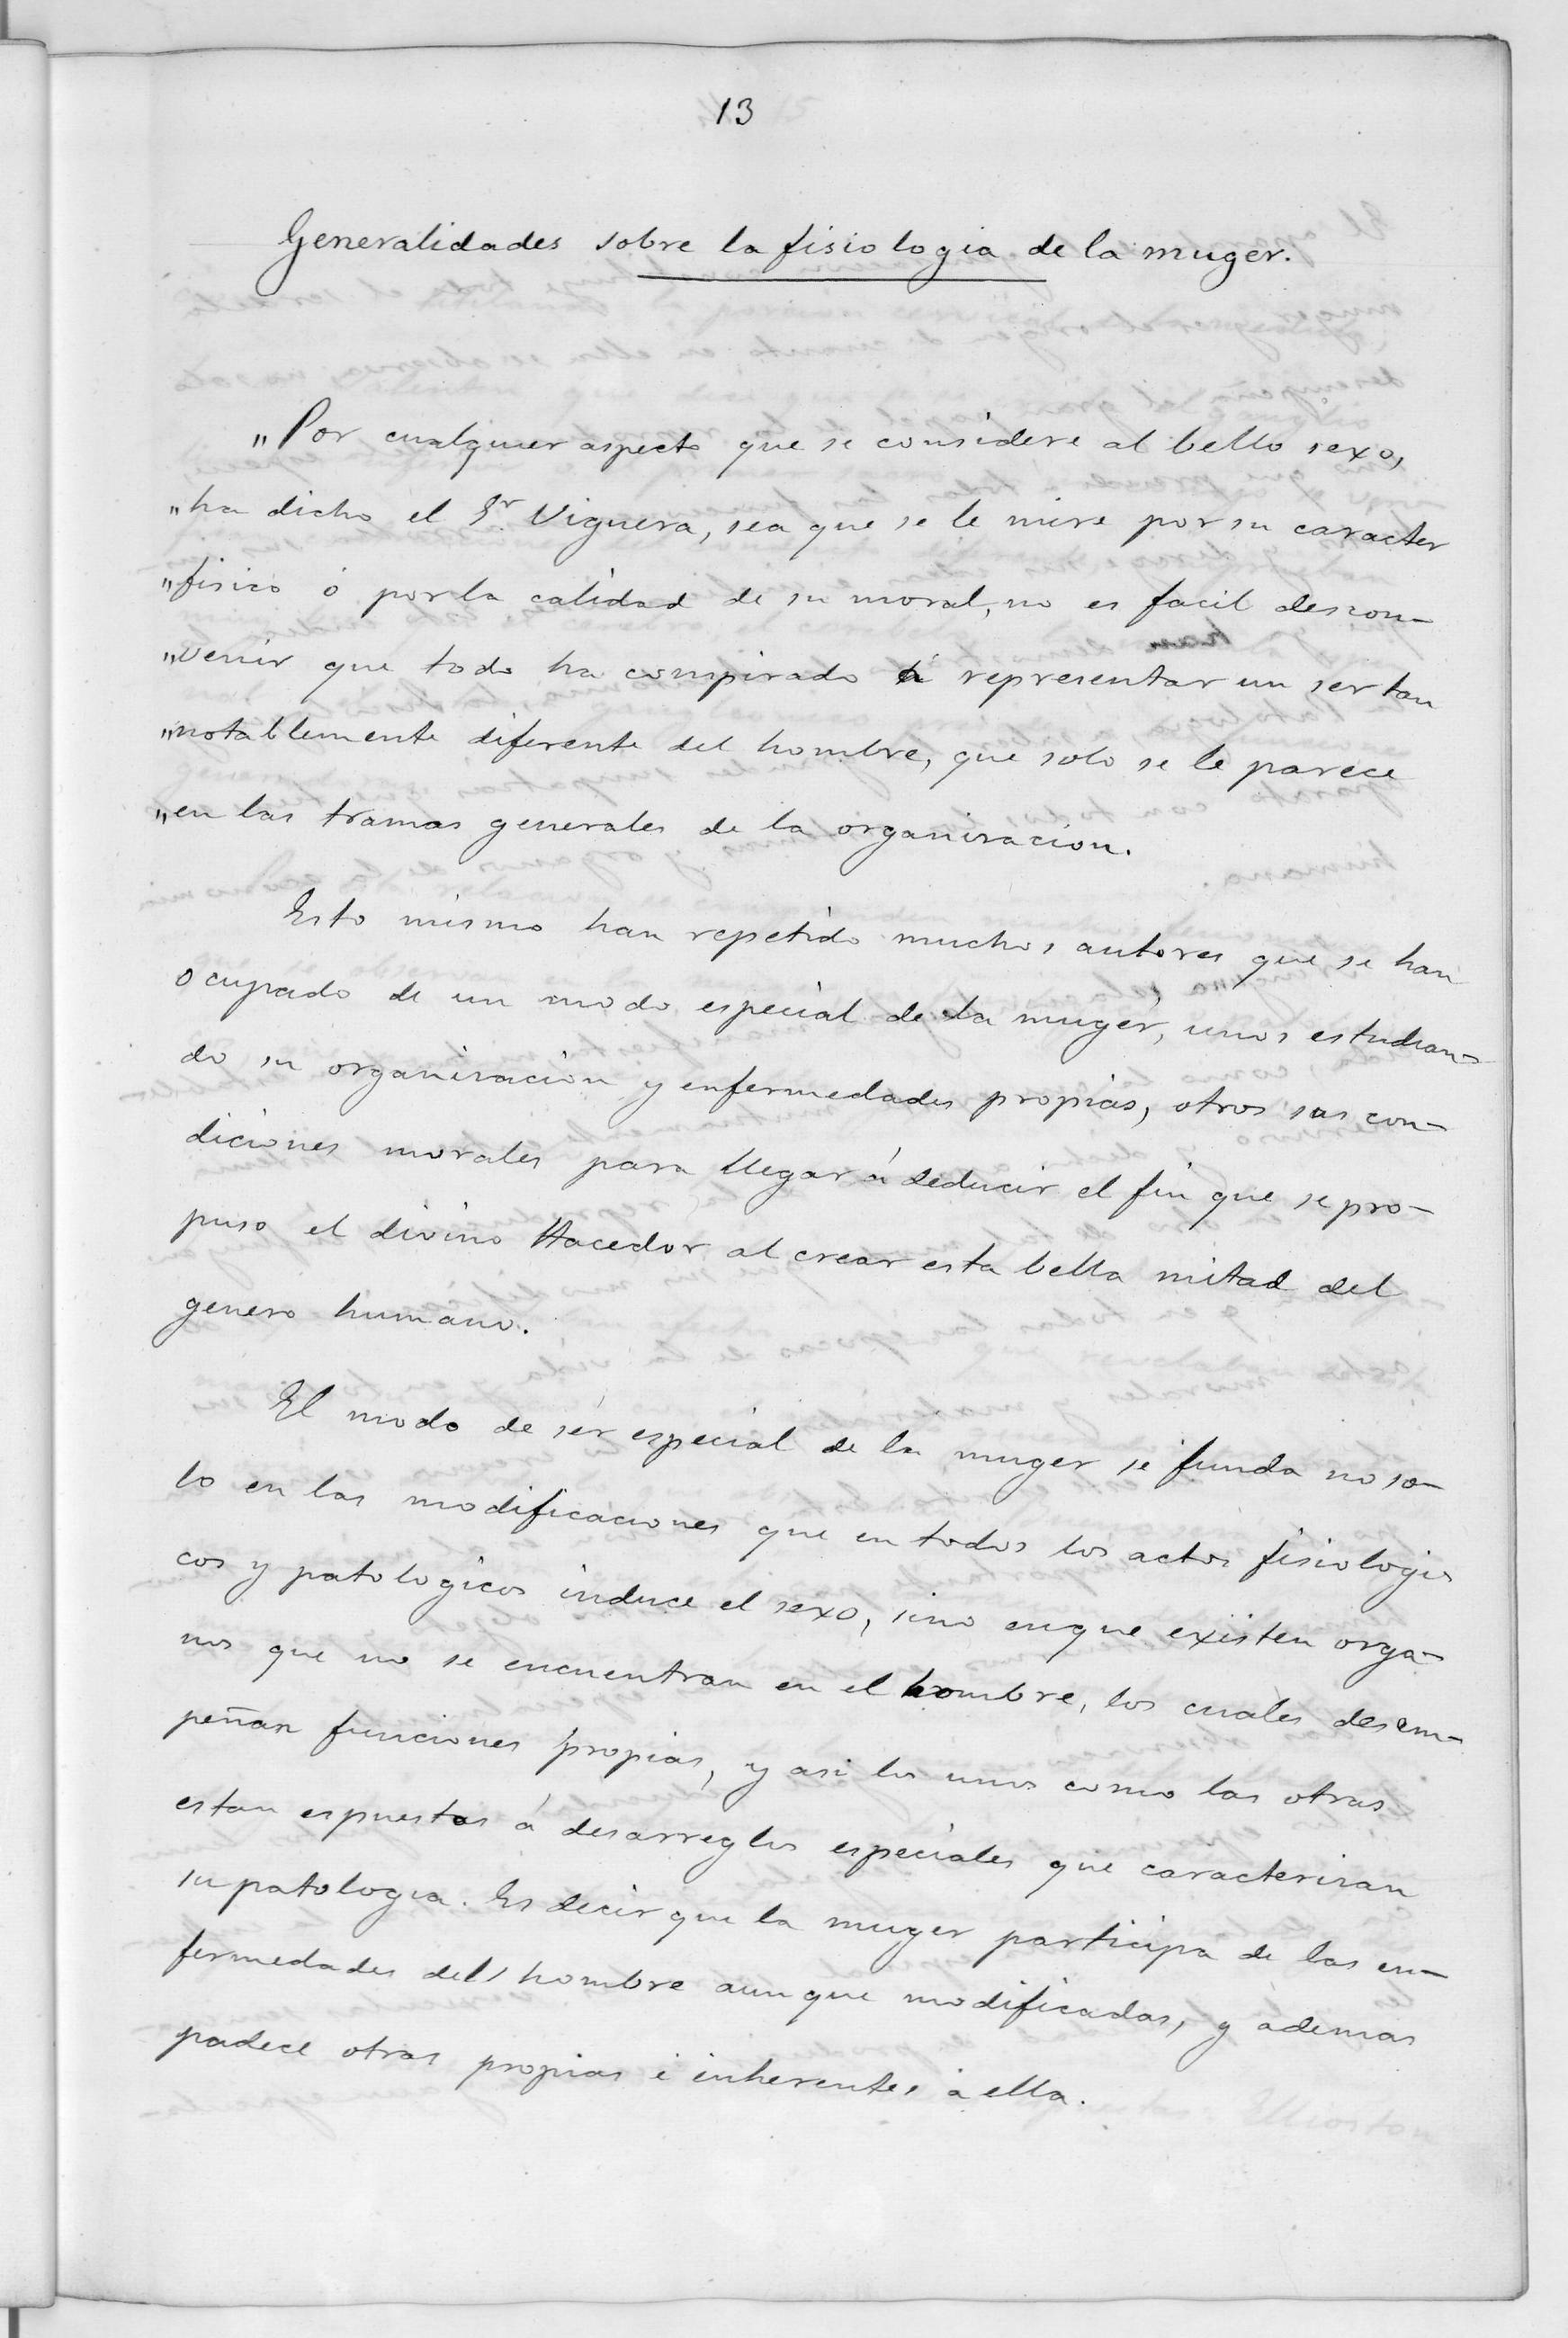 13
Generalidades sobre la fisiologia de la muger.
"Por cualquier aspecto que se considere al bello sexo,
"ha dicho el Sr. Viguera, sea que se le mire por su caracter
"fisico ó por la calidad de su moral, no es facil descon-
"venir que todo ha conspirado á representar un ser tan
"notablemente diferente del hombre, que solo se le parece
"en las tramas generales de la organizacion.
Esto mismo han repetido muchos autores que se han
ocupado de un modo especial de la muger, unos estudian-
do su organizacion y enfermedades propias, otros sus con-
diciones morales para llegar á deducir el fin que se pro-
puso el divino Hacedor al crear esta bella mitad del
genero humano.
El modo de sér especial de la muger se funda no so-
lo en las modificaciones que en todos los actos fisiologi-
cos y patologicos induce el sexo, sino en que existen orga-
nos que no se encuentran en el hombre, los cuales desem-
peñan funciones propias, y asi los unos como las otras
estan espuestos á desarreglos especiales que caracterizan
su patologia. Es decir que la muger participa de las en-
fermedades del hombre aunque modificadas, y ademas
padece otras propias é inherentes á ella.